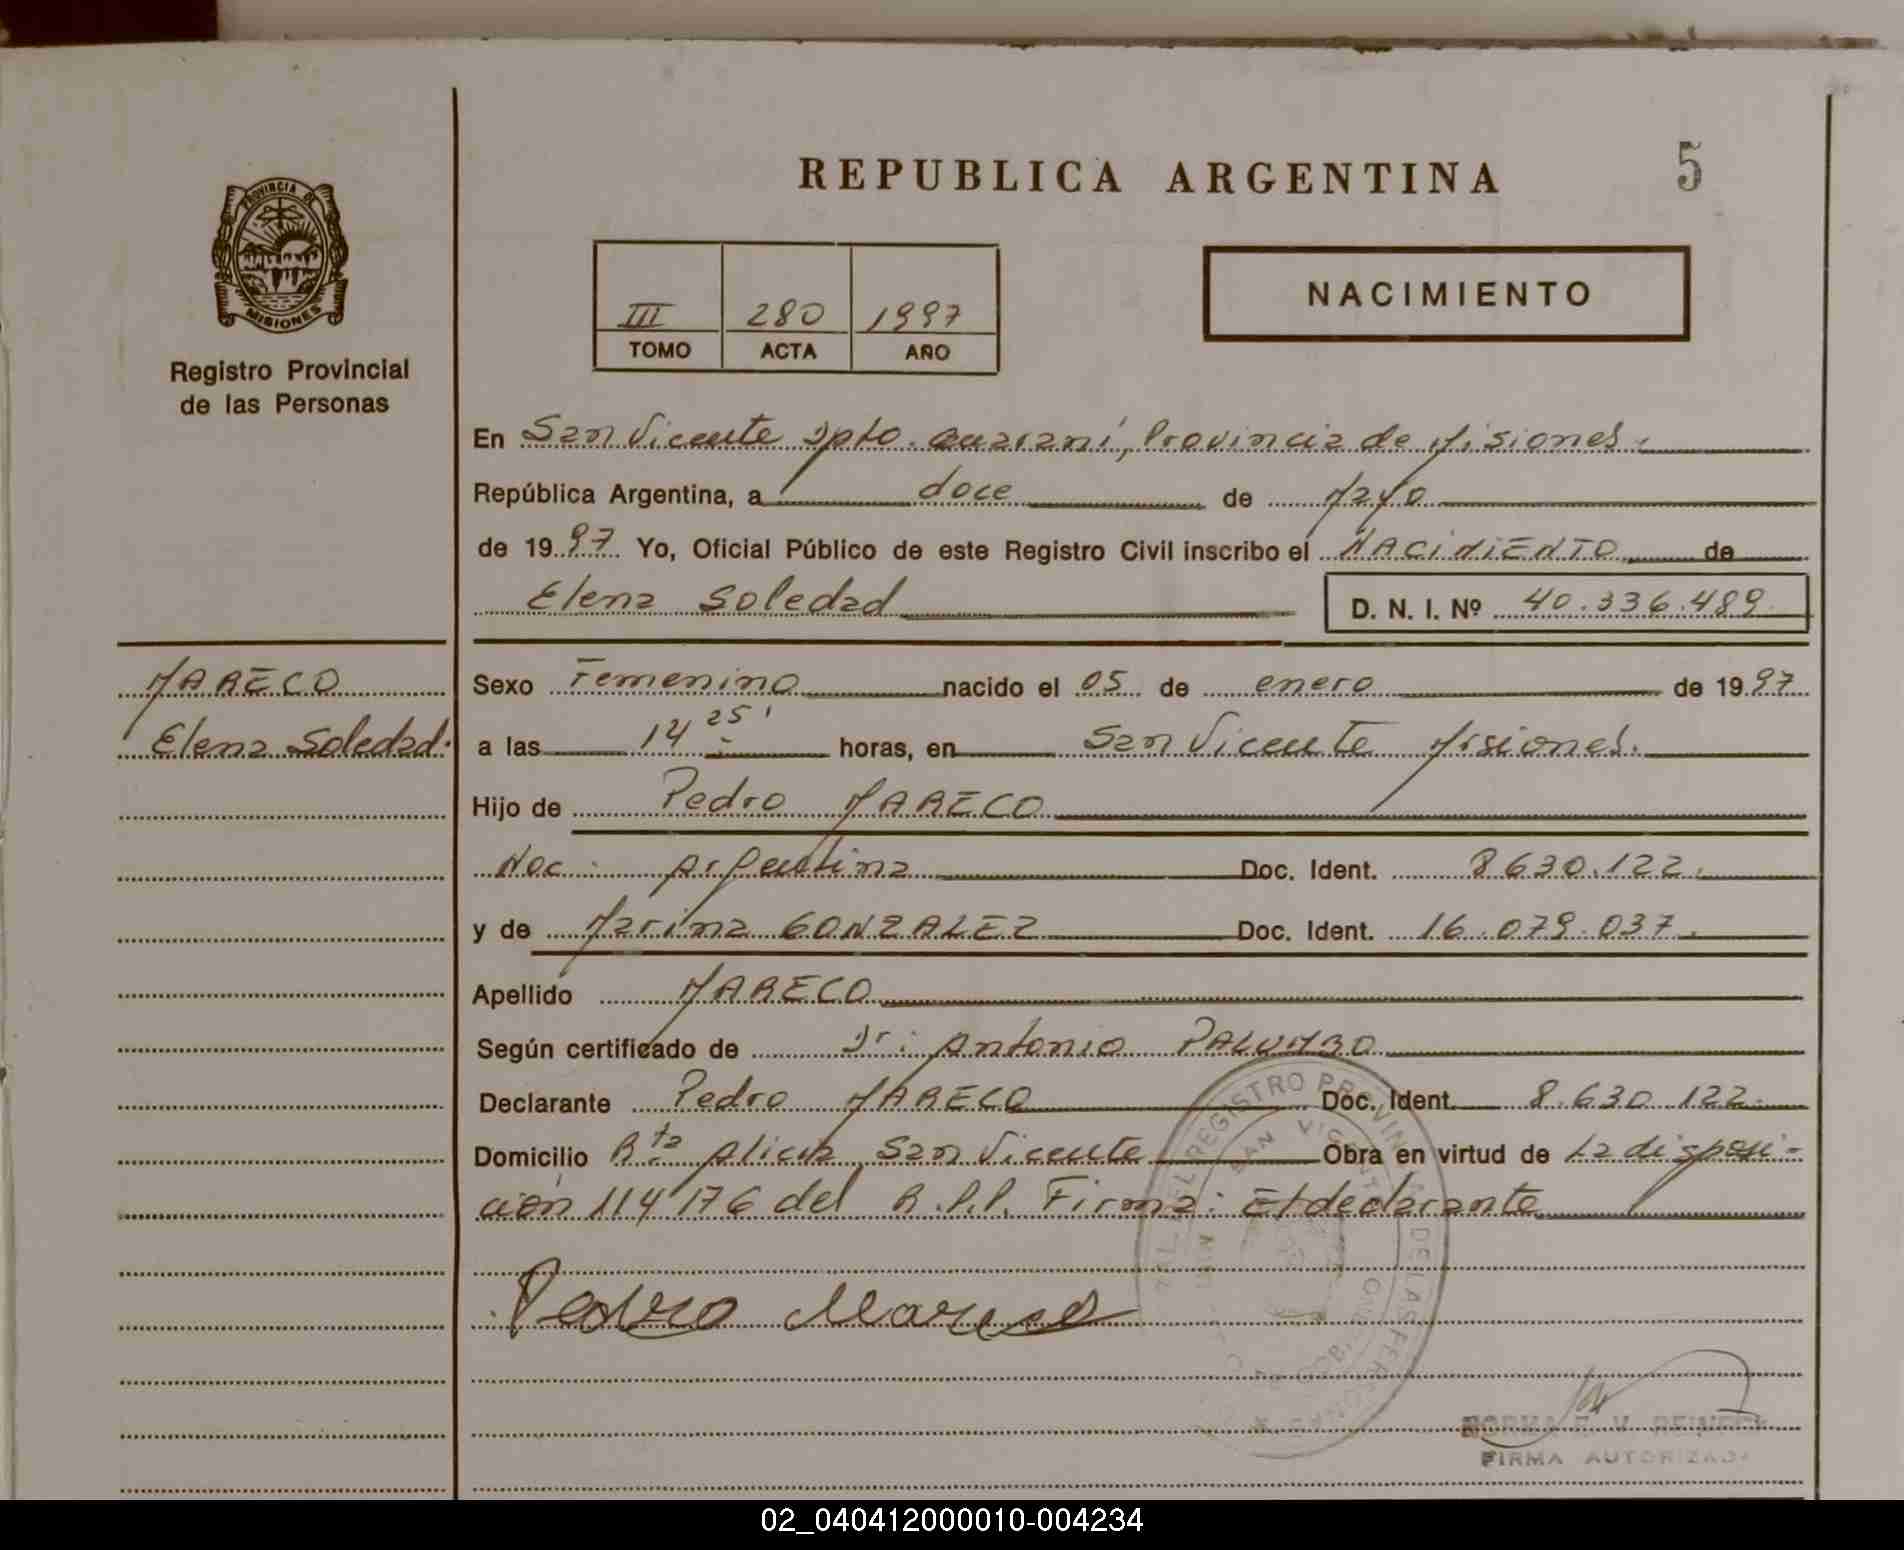 REPUBLICA ARGENTINA
5
PROVINCIA DE
MISIONES
Registro Provincial
de las Personas
III 280 1997
TOMO ACTA AÑO
NACIMIENTO
En San Vicente Dpto. Guaraní, Provincia de Misiones.
República Argentina, a doce de Mayo
de 1997 Yo, Oficial Público de este Registro Civil inscribo el NACIMIENTO de
Elena Soledad D. N. I. Nº 40.336.489
MARECO
Elena Soledad.
Sexo Femenino nacido el 05 de enero de 1997
a las 14 25' horas, en San Vicente Misiones.
Hijo de Pedro MARECO
Nac: Argentina Doc. Ident. 8630.122.
y de Marina GONZALEZ Doc. Ident. 16.079.037.
Apellido MARECO
Según certificado de Dr: Antonio PALUMBO
Declarante Pedro MARECO Doc. Ident. 8.630.122.
Domicilio Rta Alicia San Vicente Obra en virtud de La disposi-
ción 114/76 del R.P.P. Firma: El declarante
Pedro Mareco
REGISTRO PROVINCIAL DE LAS PERSONAS
SAN VICENTE
NORMA E. V.
FIRMA AUTORIZADA
02_040412000010-004234